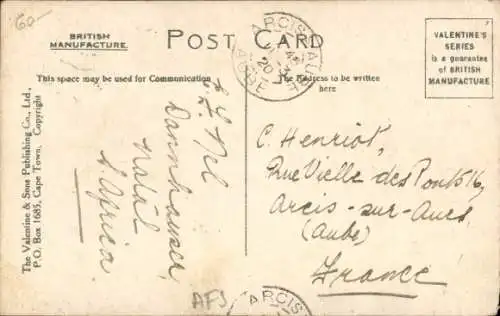 60—
BRITISH
MANUFACTURE.
POST CARD
VALENTINE'S
SERIES
is a guarantee
of BRITISH
MANUFACTURE
This space may be used for Communication
The Address to be written
here
The Valentine & Sons Publishing Co., Ltd.,
P.O. Box 1685, Cape Town. Copyright
Nel
Dannhauser,
Natal
S. Africa
C. Henriot,
Rue Vielle des Ponts 16,
Arcis-sur-Aube,
(Aube)
France
ARCIS
AUBE
AFS
ARCIS